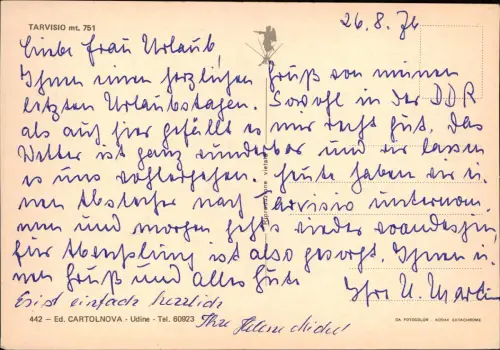 TARVISIO mt. 751
26.8.74
Liebe Frau Urlaub!
Ihnen einen herzlichen Gruß von meinen
letzten Urlaubstagen. Sowohl in der DDR
als auch hier gefällt es mir recht gut. Das
Wetter ist ganz wunderbar und wir lassen
es uns wohlergehen. Heute haben wir ei-
nen Abstecher nach Tarvisio unternom-
men und morgen geht's wieder woandershin,
für Abwechslung ist also gesorgt. Ihnen ei-
nen Gruß und Alles Gute
Ihre U. Martin
Es ist einfach herrlich
Ihre Helene Michel
442 – Ed. CARTOLNOVA - Udine - Tel. 60923
DA FOTOCOLOR - KODAK EKTACHROME